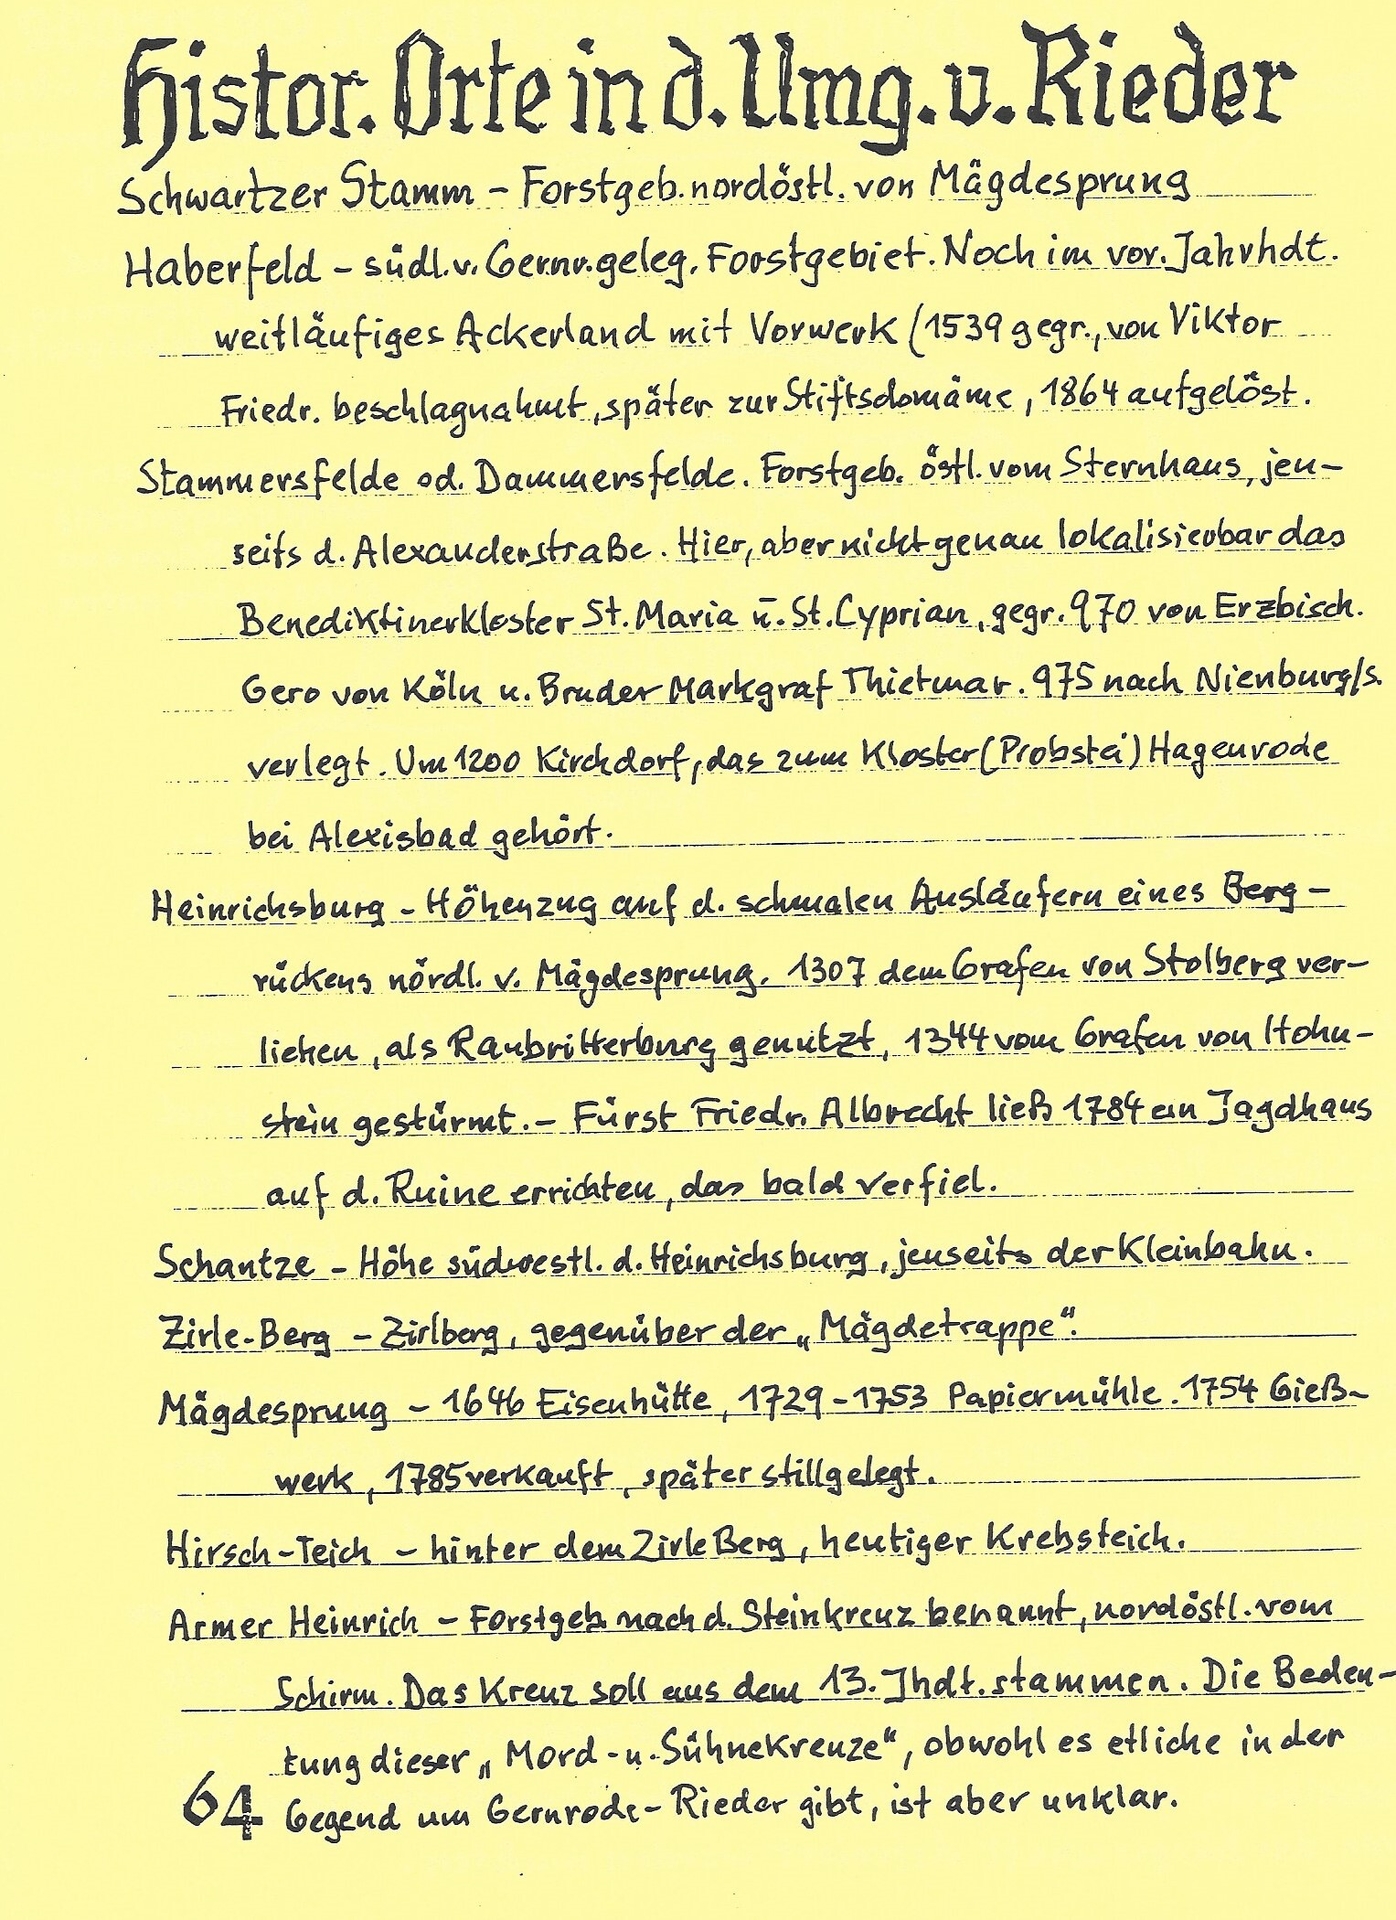 Histor. Orte in d. Umg. v. Rieder
Schwartzer Stamm – Forstgeb. nordöstl. von Mägdesprung
Haberfeld – südl. v. Gernr. geleg. Forstgebiet. Noch im vor. Jahrhdt.
weitläufiges Ackerland mit Vorwerk (1539 gegr., von Viktor
Friedr. beschlagnahmt, später zur Stiftsdomäne, 1864 aufgelöst.
Stammersfelde od. Dammersfelde. Forstgeb. östl. vom Sternhaus, jen-
seits d. Alexanderstraße. Hier, aber nicht genau lokalisierbar das
Benediktinerkloster St. Maria u. St. Cyprian, gegr. 970 von Erzbisch.
Gero von Köln u. Bruder Markgraf Thietmar. 975 nach Nienburg/S.
verlegt. Um 1200 Kirchdorf, das zum Kloster (Probstei) Hagenrode
bei Alexisbad gehört.
Heinrichsburg – Höhenzug auf d. schmalen Ausläufern eines Berg-
rückens nördl. v. Mägdesprung. 1307 dem Grafen von Stolberg ver-
liehen, als Raubritterburg genutzt, 1344 vom Grafen von Hohn-
stein gestürmt. – Fürst Friedr. Albrecht ließ 1784 ein Jagdhaus
auf d. Ruine errichten, das bald verfiel.
Schantze – Höhe südwestl. d. Heinrichsburg, jenseits der Kleinbahn.
Zirle-Berg – Zirlberg, gegenüber der „Mägdetrappe“.
Mägdesprung – 1646 Eisenhütte, 1729-1753 Papiermühle. 1754 Gieß-
werk, 1785 verkauft, später stillgelegt.
Hirsch-Teich – hinter dem Zirle Berg, heutiger Krebsteich.
Armer Heinrich – Forstgeb. nach d. Steinkreuz benannt, nordöstl. vom
Schirm. Das Kreuz soll aus dem 13. Jhdt. stammen. Die Bedeu-
tung dieser „Mord- u. Sühnekreuze“, obwohl es etliche in der
Gegend um Gernrode-Rieder gibt, ist aber unklar.
64